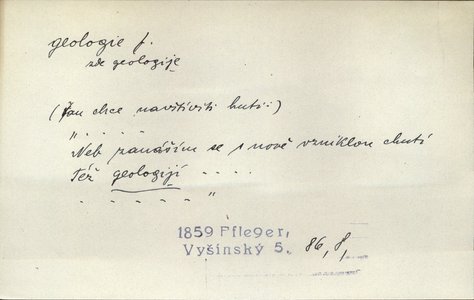 geologie f.
zde geologije
(Jan chce navštíviti hutí:)
" . . . . .
Neb zanáším se s nově vzniklou chutí
Též geologijí . . . .
. . . . . "
1859 Pfleger,
Vyšinský 5. 86, 8,